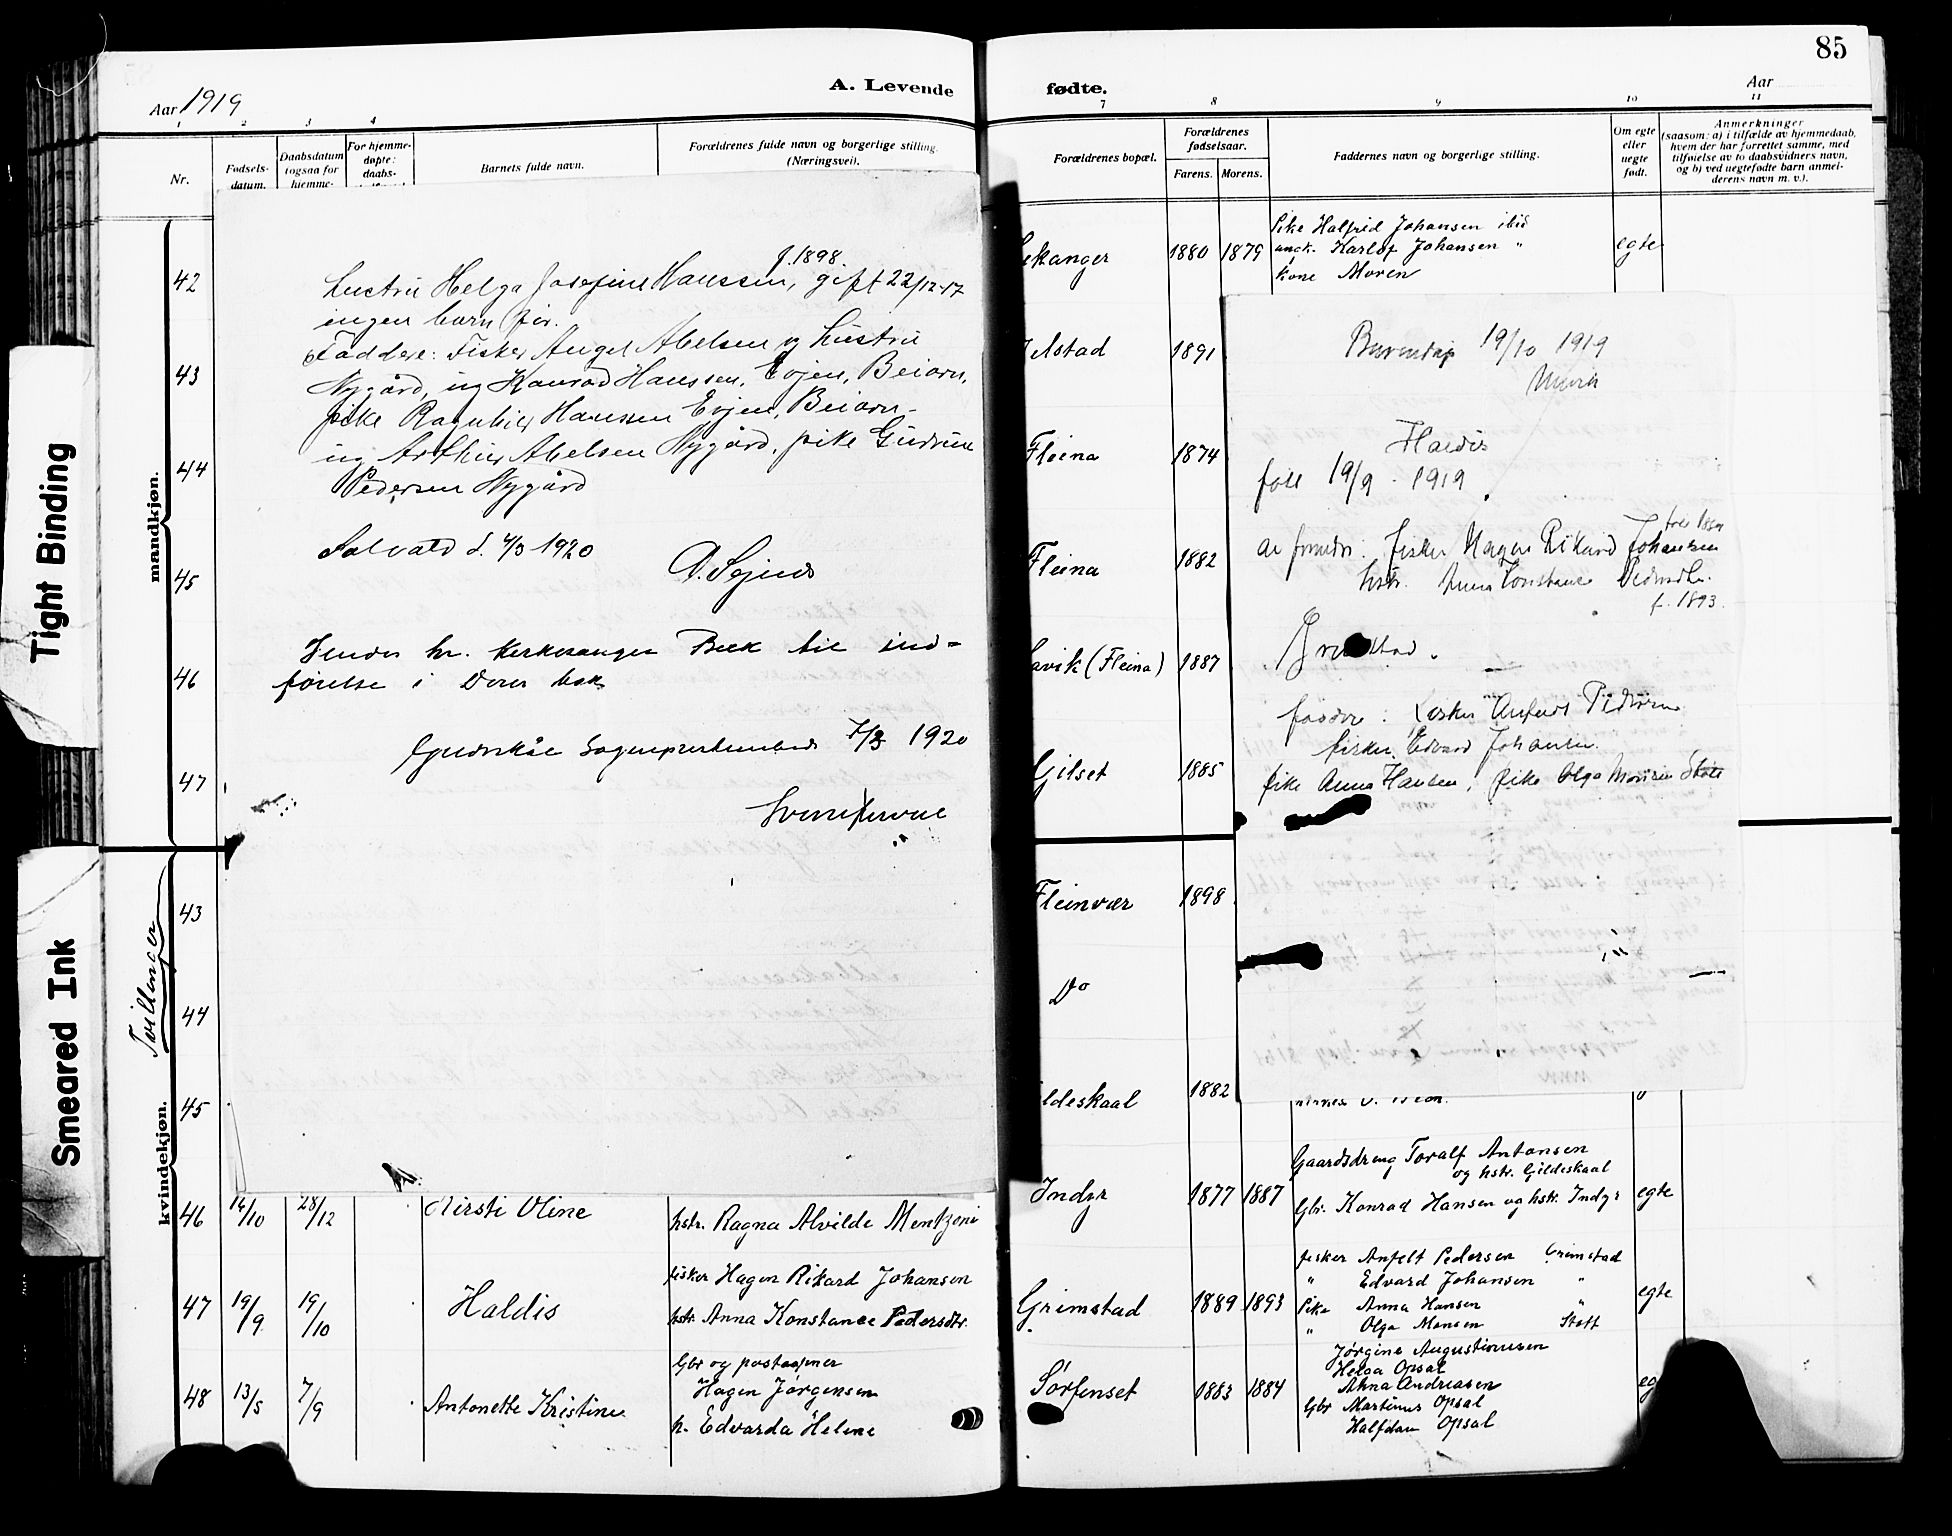 Tight Binding
Smeared Ink
Aar 1919
A. Levende
1 2 3 4
Nr.
Fødsels-
datum.
Daabsdatum
(ogsaa for
hjemme-
For hjemme-
døpte:
daabs-
Barnets fulde navn.
Forældrenes fulde navn og borgerlige stilling.
(Næringsvei).
mandkjøn.
42
43
44
45
46
47
f. 1898.
hustru Helga Josefine Hanssen, gift 22/12-17
ingen barn før.
Faddere: Fisker Angel Abelsen og hustru
Nygård, ug Konrad Hanssen, Evjen, Beiarn,
pike Hanssen Evjen, Beiarn-
ug Arthur Abelsen Nygård, pike Gudrun
Pedersen Nygård
d. 4/3 1920
Sendes hr. kirkesanger Beck til ind-
førelse i Deres bok
Gildeskål Sogneprestembed 7/3 1920
Tvillinger
kvindekjøn.
43
44
45
46 14/10 28/12 Kirsti Oline hstr. Ragna Alvilde Mentzoni
47 19/9 19/10 Haldis
fisker Hagen Rikard Johansen
hstr. Anna Konstance Pedersdtr.
48 13/5 7/9 Antonette Kristine
Gbr og postaapner
Hagen Jørgensen
h. Edvarda Helene
85
fødte.
Aar
7 8 9 10 11
Forældrenes bopæl.
Forældrenes
fødselsaar.
Farens. Morens.
Faddernes navn og borgerlige stilling.
Om egte
eller
uegte
født.
Anmerkninger
(saasom: a) i tilfælde av hjemmedaab,
hvem der har forrettet samme, med
tilføielse av to daabsvidners navn,
og b) ved uegtefødte barn anmel-
derens navn m. v.).
ekanger 1880 1879
Pike Halfrid Johansen ibid
ungk. Karlof Johansen "
kone Moren
egte
elstad 1891
Fleina 1874
Fleina 1882
avik (Fleina) 1887
Gilset 1885
Barnedåp 19/10 1919
Haldis
født 19/9 - 1919
av foreldre: fisker Hagen Rikard Johansen
hstr. Anna Konstance Pedersdtr.
f. 1893.
faddere: fisker Anfelt Pedersen
fisker Edvard Johansen.
pike Anna Hansen, pike Olga Monsen Støtt
Fleinvær 1898
Do
ildeskaal 1882
Indyr 1877 1887
Gaardsdreng Toralf Antonsen
og hstr. Gildeskaal
Gbr. Konrad Hansen og hstr. Indyr
egte
Grimstad 1889 1893
fisker Anfelt Pedersen Grimstad
" Edvard Johansen "
Pike Anna Hansen "
" Olga Monsen Støtt
egte
Sørfenset 1883 1884
Jørgine Augustinusen
Helga Opsal
Anna Andreasen
Gbr Martinus Opsal
Halfdan Opsal
eg